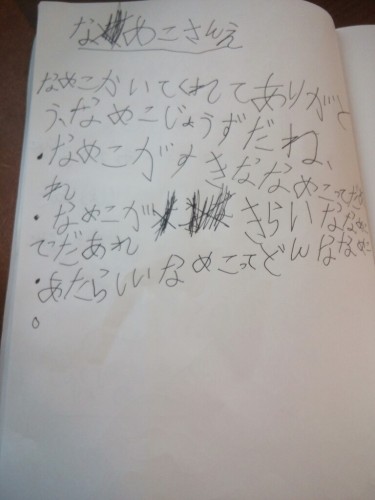 なめこさんえ
なめこかいてくれてありがと
う、なめこじょうずだね、
・なめこがすきななめこってだあ
れ
・なめこがきらいななめこ
てだあれ
・あたらしいなめこってどんななめこ
。